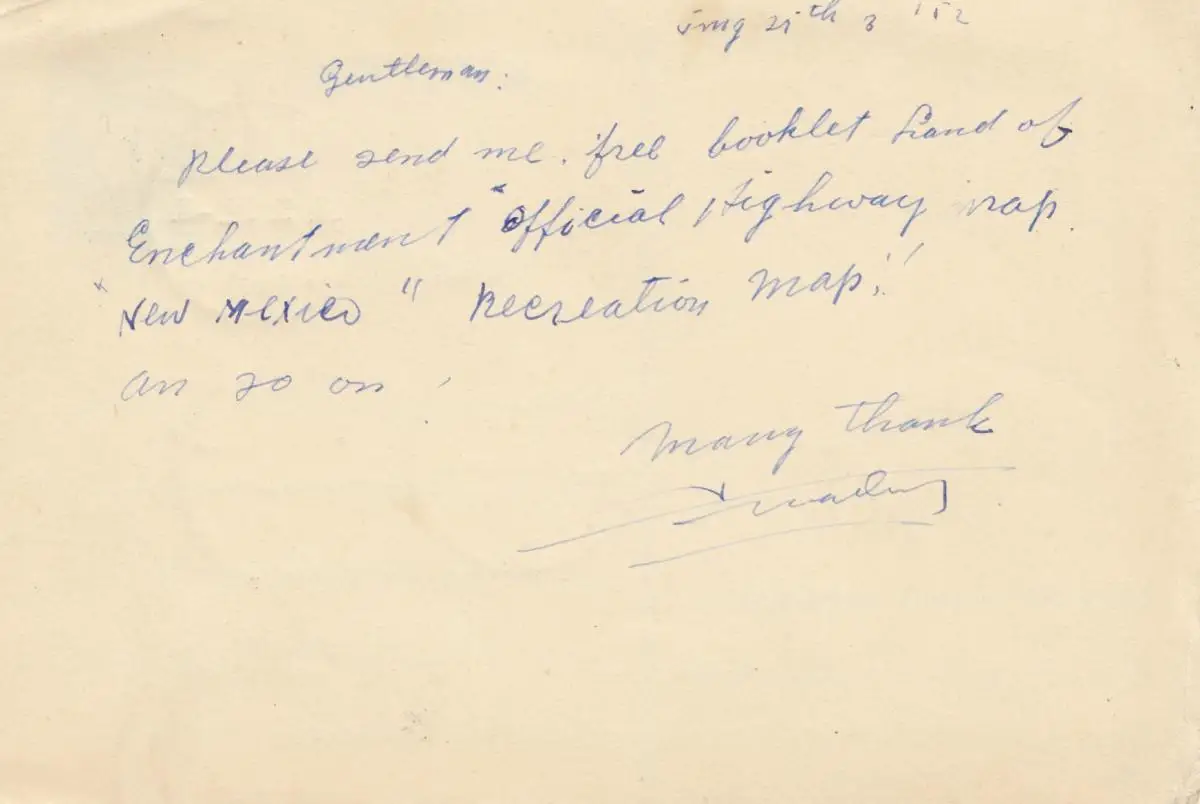 '52
Gentleman.
Please send me. free booklet Land of
Enchantment "Official Highway map
"New Mexico" Recreation Map!"
an so on,
Many Thank